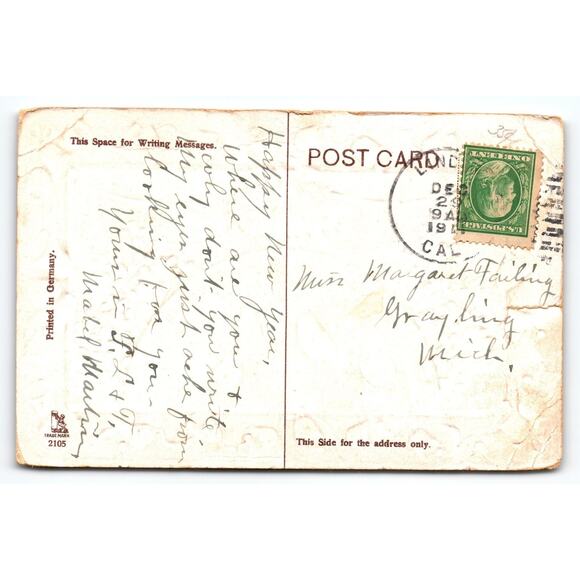 This Space for Writing Messages.
Happy New Year,
Where are you &
why don't you write.
My eyes just ache from
looking for you
Yours in F. L & T,
Mabel
Printed in Germany.
TRADE MARK
2105
POST CARD
DEC
29
9 A
191
CAL
U.S. POSTAGE
ONE CENT
Miss Margaret Failing
Grayling
Mich.
This Side for the address only.